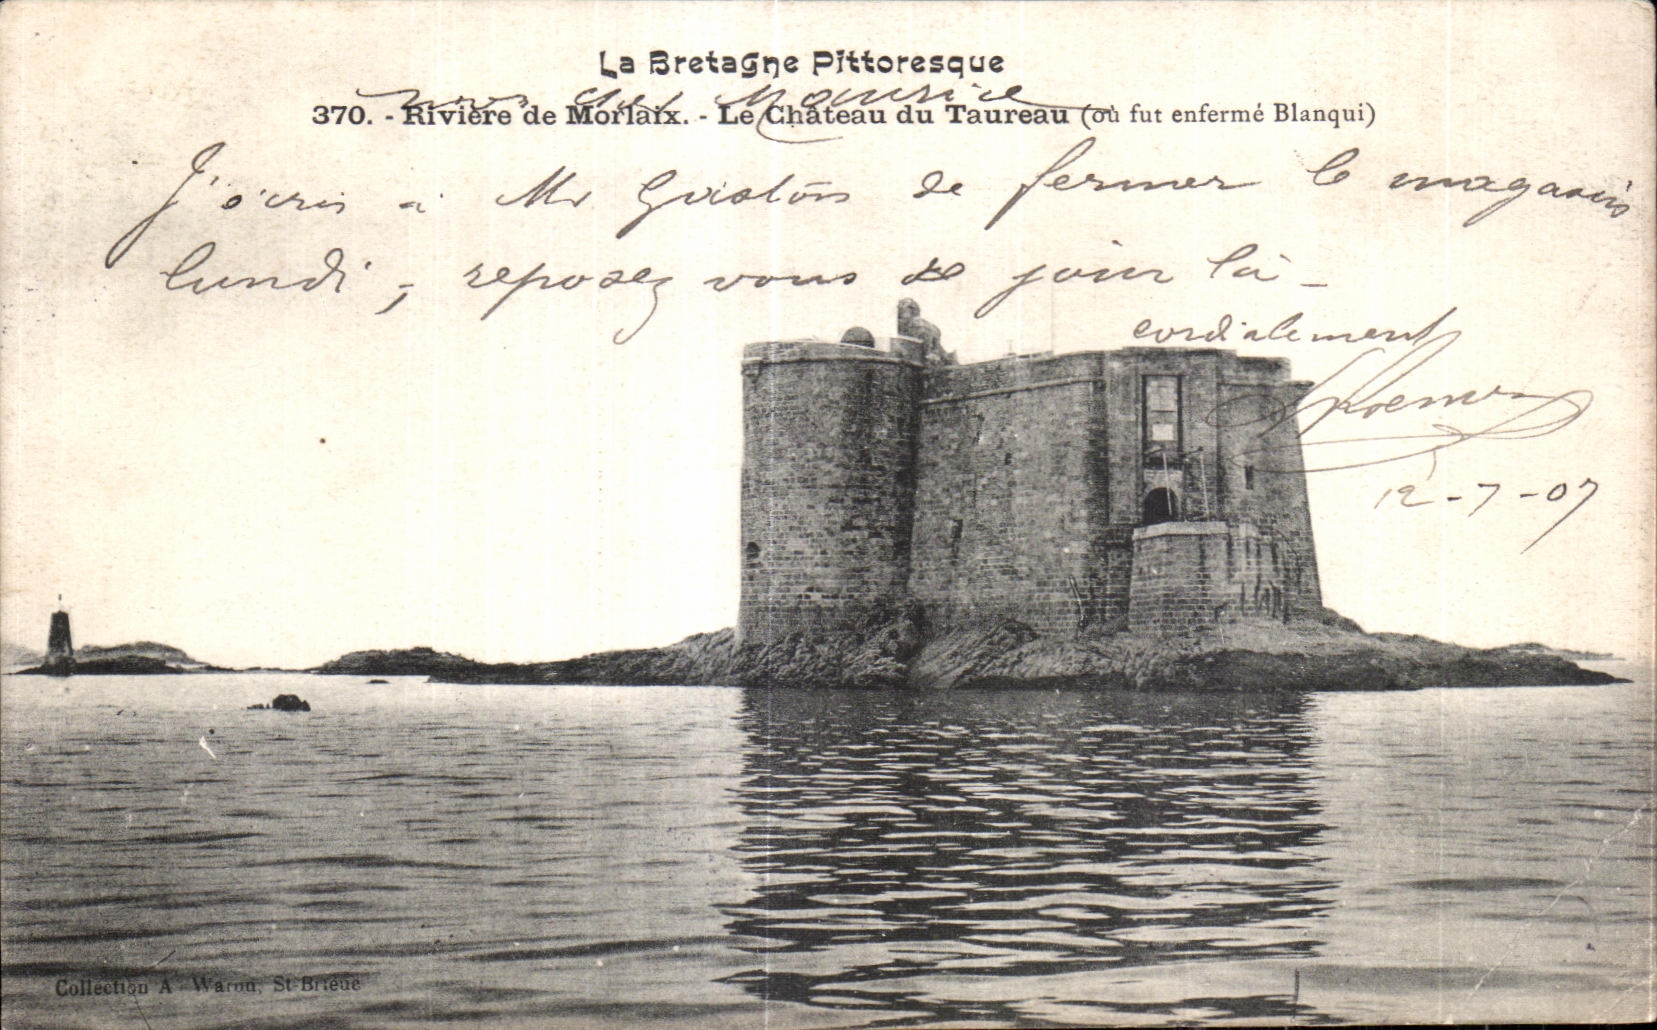 La Bretagne Pittoresque
Mon cher Maurice
370. - Rivière de Morlaix. - Le Château du Taureau (où fut enfermé Blanqui)
J'écris à Mr Gaston de fermer le magasin
lundi, reposez vous ce jour là -
cordialement
12-7-07
Collection A Waron, St-Brieuc